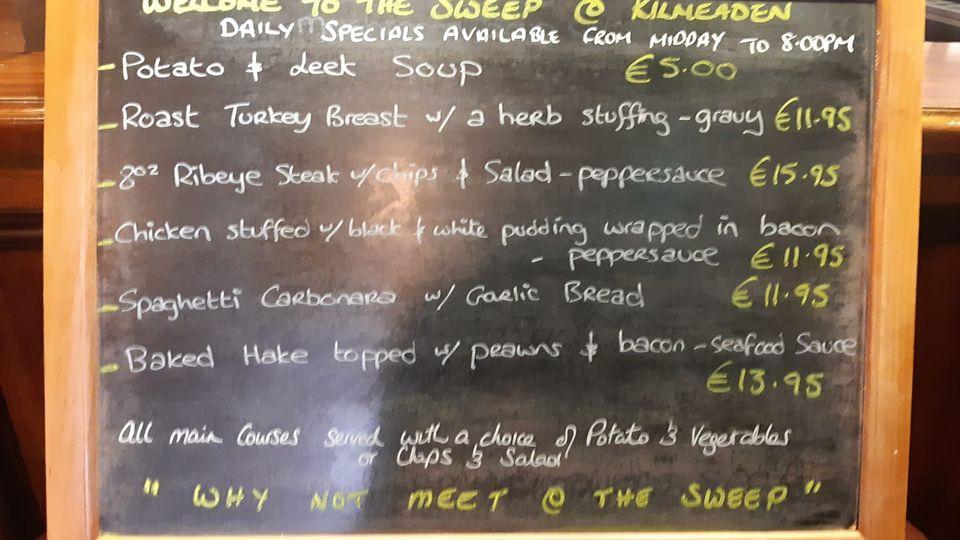 WELCOME TO THE SWEEP @ KILMEADEN
DAILY SPECIALS AVAILABLE FROM MIDDAY TO 8:00PM
- Potato & Leek Soup €5.00
- Roast Turkey Breast w/ a herb stuffing - gravy €11.95
- 8oz Ribeye Steak w/ chips & Salad - peppersauce €15.95
- Chicken stuffed w/ black & white pudding wrapped in bacon
- peppersauce €11.95
- Spaghetti Carbonara w/ Garlic Bread €11.95
- Baked Hake topped w/ prawns & bacon - Seafood Sauce
€13.95
All main Courses served with a choice of Potato & Vegetables
or Chips & Salad
" WHY NOT MEET @ THE SWEEP "